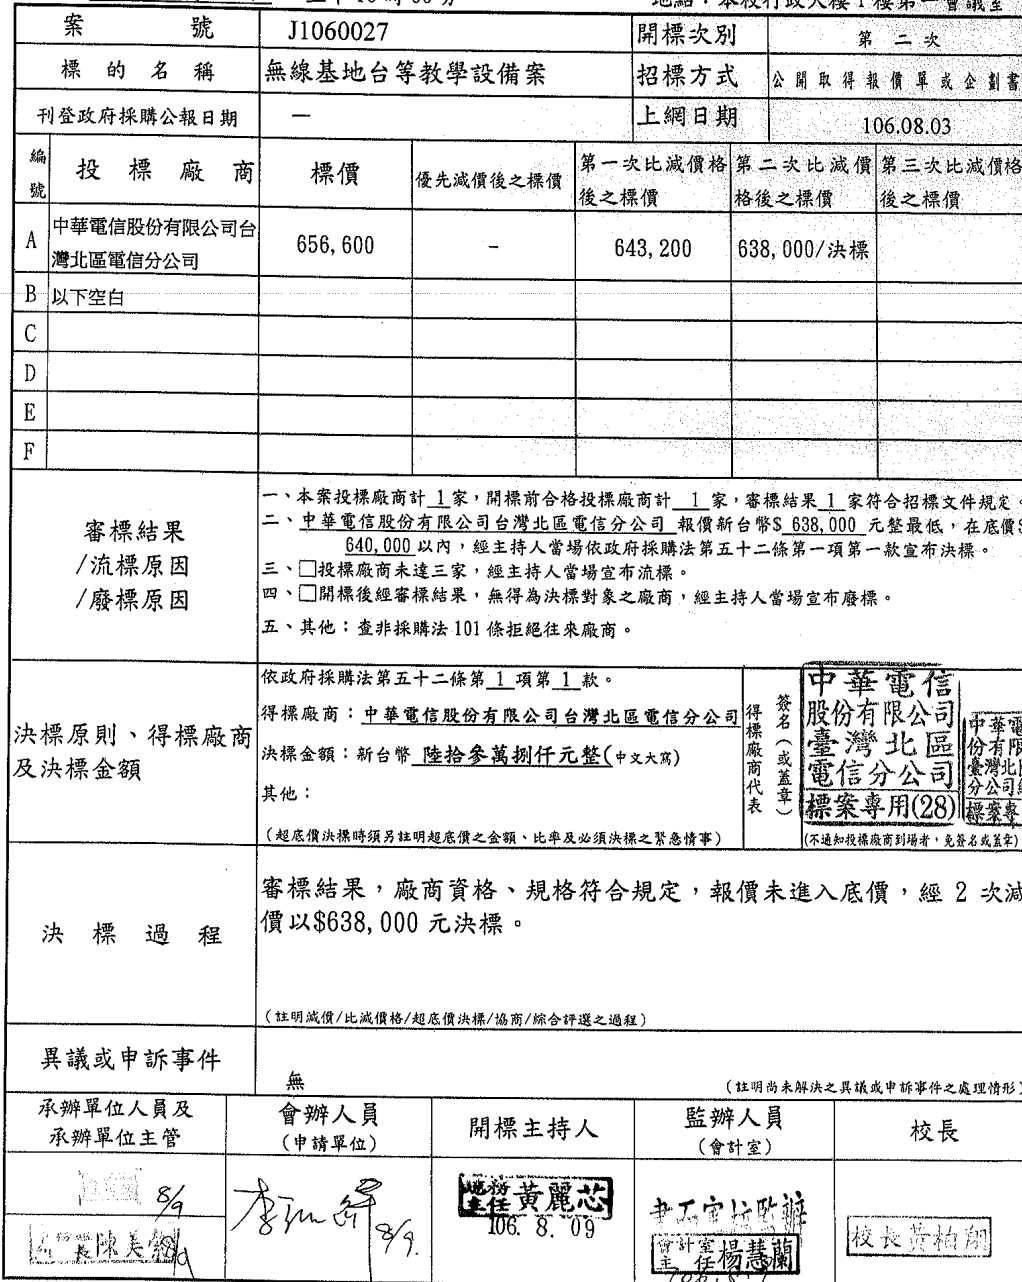 地點：本校行政大樓1樓第一會議室
案號 J1060027 開標次別 第二次
標的名稱 無線基地台等教學設備案 招標方式 公開取得報價單或企劃書
刊登政府採購公報日期 — 上網日期 106.08.03
編號 投標廠商 標價 優先減價後之標價 第一次比減價格後之標價 第二次比減價格後之標價 第三次比減價格後之標價
A 中華電信股份有限公司台灣北區電信分公司 656,600 - 643,200 638,000/決標
B 以下空白
C
D
E
F
審標結果
/流標原因
/廢標原因
一、本案投標廠商計 1 家，開標前合格投標廠商計 1 家，審標結果 1 家符合招標文件規定。
二、中華電信股份有限公司台灣北區電信分公司 報價新台幣$ 638,000 元整最低，在底價$
640,000 以內，經主持人當場依政府採購法第五十二條第一項第一款宣布決標。
三、□投標廠商未達三家，經主持人當場宣布流標。
四、□開標後經審標結果，無得為決標對象之廠商，經主持人當場宣布廢標。
五、其他：查非採購法101條拒絕往來廠商。
決標原則、得標廠商
及決標金額
依政府採購法第五十二條第 1 項第 1 款。
得標廠商：中華電信股份有限公司台灣北區電信分公司
決標金額：新台幣 陸拾參萬捌仟元整(中文大寫)
其他：
(超底價決標時須另註明超底價之金額、比率及必須決標之緊急情事)
得標廠商代表
簽名（或蓋章）
中華電信
股份有限公司
臺灣北區
電信分公司
標案專用(28)
中華電
份有限
臺灣北
分公司
標案專
(不通知投標廠商到場者，免簽名或蓋章)
決標過程
審標結果，廠商資格、規格符合規定，報價未進入底價，經 2 次減
價以$638,000 元決標。
(註明減價/比減價格/超底價決標/協商/綜合評選之過程)
異議或申訴事件
無
(註明尚未解決之異議或申訴事件之處理情形)
承辦單位人員及
承辦單位主管
會辦人員
(申請單位)
開標主持人
監辦人員
(會計室)
校長
8/9
長陳美
8/9.
總務主任 黃麗芯
106. 8. 09
會計室主任 楊慧蘭
校長黃柏翔